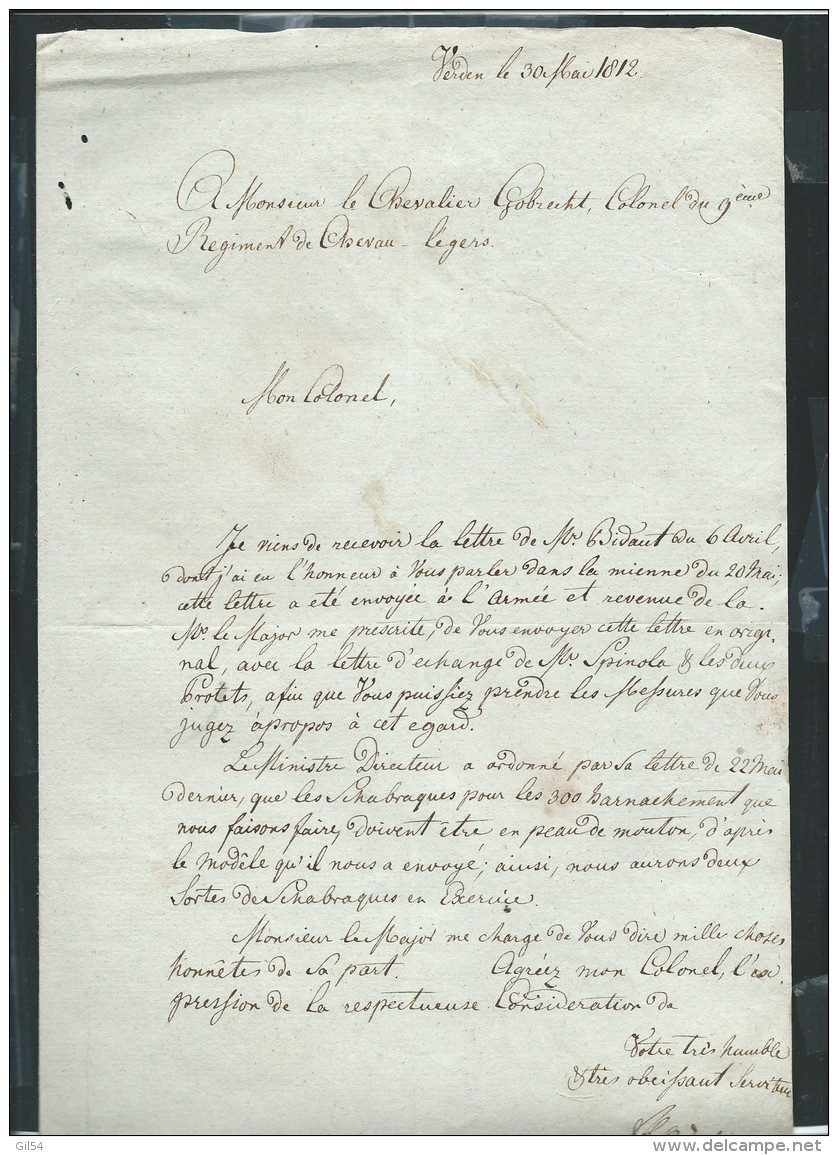 Verden le 30 Mai 1812.
A Monsieur le Chevalier Gobrecht, Colonel du 9ème
Regiment de Chevau-légers.
Mon Colonel,
Je viens de recevoir la lettre de Mr. Bidaut du 6 Avril,
dont j'ai eu l'honneur à Vous parler dans la mienne du 20 Mai;
cette lettre a eté envoyée à l'Armée et revenue de la.
Mr. le Major me prescrite, de Vous envoyer cette lettre en origi-
nal, avec la lettre d'echange de Mr. Spinola & les deux
Protets, afin que Vous puissiez prendre les Messures que Vous
jugez àpropos à cet egard.
Le Ministre Directeur a ordonné par Sa lettre de 22 Mai
dernier, que les Schabraques pour les 300 harnachement que
nous faisons faire, doivent être en peau de mouton, d'après
le modêle qu'il nous a envoyé; ainsi, nous aurons deux
Sortes de Schabraques en Exercice.
Monsieur le Major me charge de Vous dire mille choses
honnêtes de Sa part. Agréez mon Colonel, l'ex-
pression de la respectueuse Consideration de
Votre très humble
& très obeissant Serviteur
Gil54
www.delcampe.net